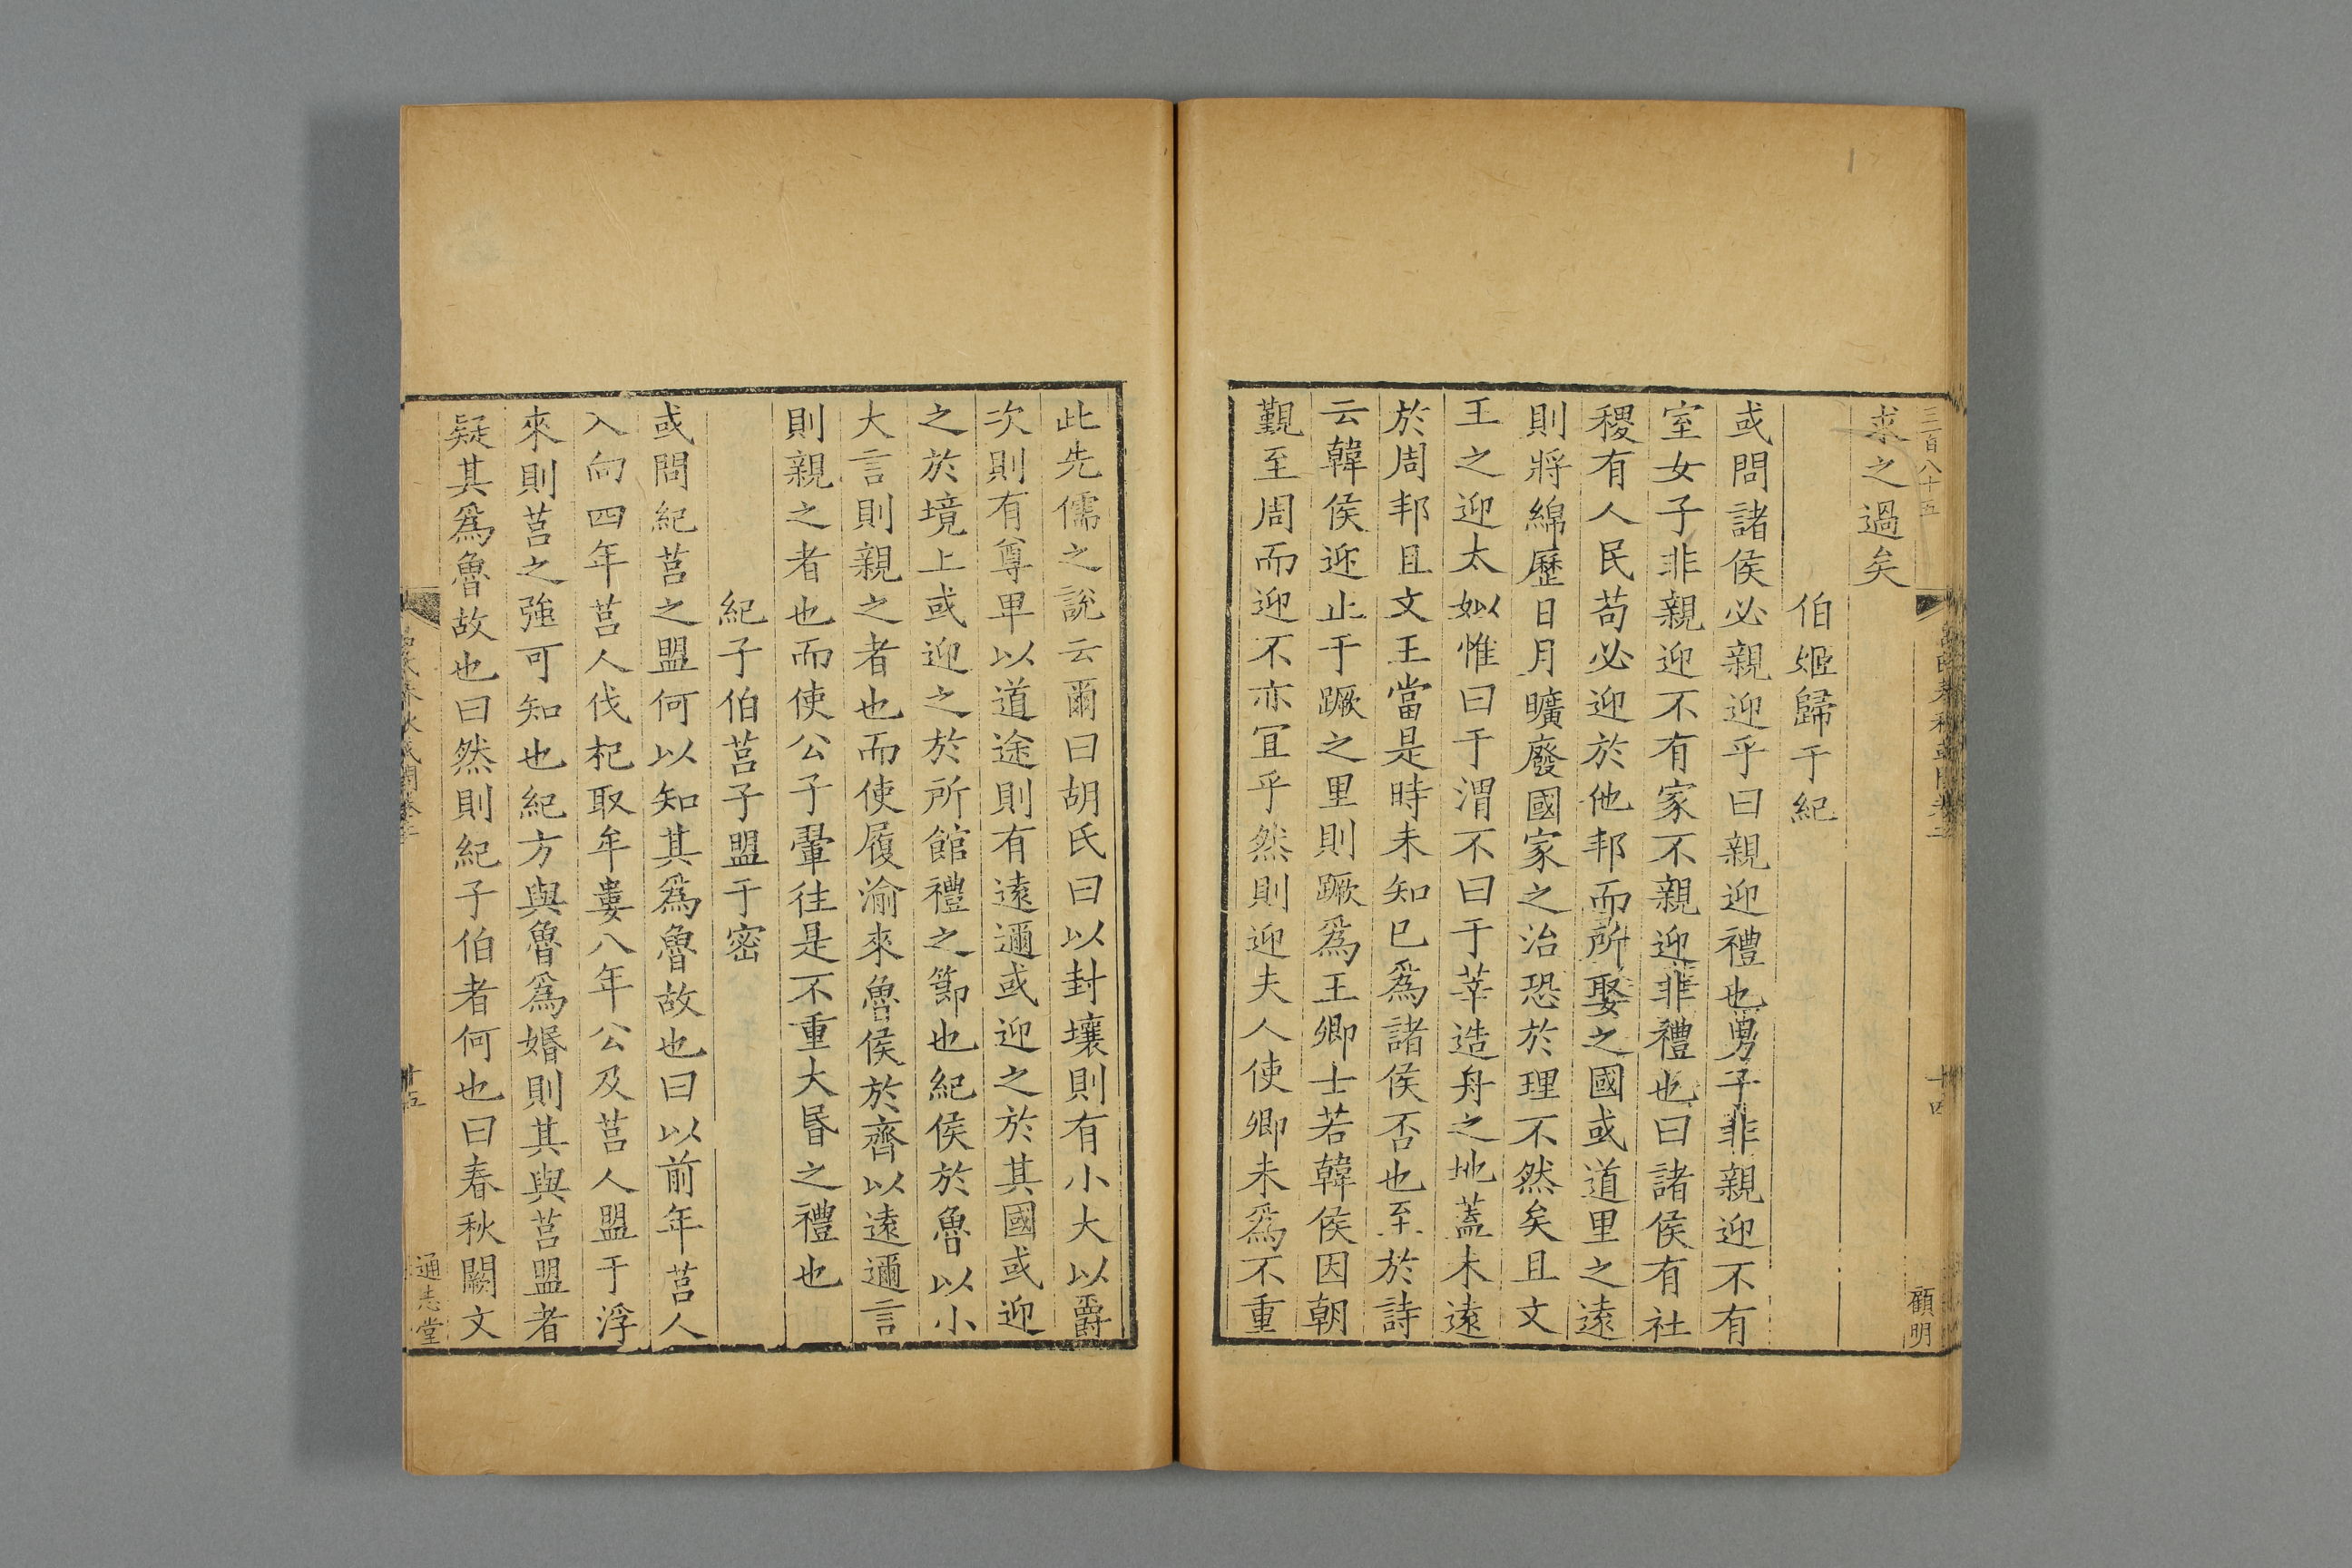 三百八十五
十四
顧明
求之過矣
伯姬歸于紀
或問諸侯必親迎乎曰親迎禮也男子非親迎不有
室女子非親迎不有家不親迎非禮也曰諸侯有社
稷有人民苟必迎於他邦而所娶之國或道里之遠
則將綿歷日月曠廢國家之治恐於理不然矣且文
王之迎太姒惟曰于渭不曰于莘造舟之地蓋未遠
於周邦且文王當是時未知已為諸侯否也至於詩
云韓侯迎止于蹶之里則蹶為王卿士若韓侯因朝
覲至周而迎不亦冝乎然則迎夫人使卿未為不重
此先儒之說云爾曰胡氏曰以封壤則有小大以爵
次則有尊卑以道途則有遠邇或迎之於其國或迎
之於境上或迎之於所館禮之節也紀侯於魯以小
大言則親之者也而使履渝來魯侯於齊以遠邇言
則親之者也而使公子翬往是不重大昬之禮也
紀子伯莒子盟于密
或問紀莒之盟何以知其為魯故也曰以前年莒人
入向四年莒人伐杞取牟婁八年公及莒人盟于浮
來則莒之強可知也紀方與魯為婚則其與莒盟者
疑其為魯故也曰然則紀子伯者何也曰春秋闕文
十五
通志堂